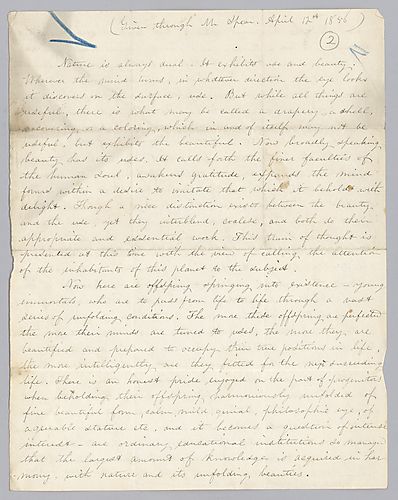 (Given through Mr Spear. April 12th 1856)
(2)
Nature is always dual. It exhibits use and beauty.
Wherever the mind turns, in whatever direction the eye looks
it discovers on the surface, use. But while all things are
useful, there is what may be called a drapery, a shell,
a covering, or a coloring, which in and of itself may not be
useful, but exhibits the beautiful. Now broadly speaking
beauty has its uses. It calls forth the finer faculties of
the human Soul, awakens gratitude, expands the mind
forms within a desire to imitate that which it beholds with
delight. Though a nice distinction exists between the beauty
and the use, yet they interblend, coalesce, and both do their
appropriate and essential work. This train of thought is
presented at this time with the view of calling the attention
of the inhabitants of this planet to the subject.
Now here are offspring, springing into existence – young
immortals, who are to pass from life to life through a vast
series of unfolding conditions. The more these offspring are perfected
the more their minds are tuned to uses, the more they are
beautified and prepared to occupy their true positions in life,
the more intelligently are they fitted for the next succeeding
life. There is an honest pride enjoyed on the part of progenitors
when beholding their offspring harmoniously unfolded of
fine beautiful form, calm mild genial, philosophic eye, of
agreeable stature etc, and it becomes a question of intense
interest – are ordinary educational institutions so managed
that the largest amount of knowledge is acquired in har
mony with nature and its unfolding beauties.